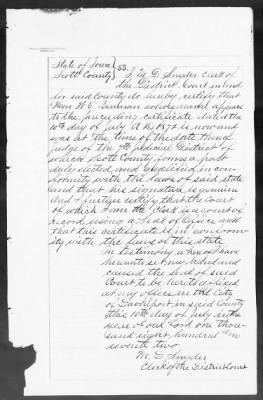 State of Iowa } ss.
Scott County } I M D Snyder Clerk of
the District Court in and
for said County do hereby certify that
Hon W. F. whose name appears
to the preceding certificate dated the
10th day of July A D 1872 is now and
was at the time of the date thereof
judge of the 7th Judicial District of
which Scott County forms a part
duly elected and qualified in con-
formity with the laws of said state
and that his signature is genuine
And I further certify that the Court
of which I am the Clerk is a court of
record using a Seal of office and
that this certificate is in conform-
ity with the laws of this state
in testimony whereof I have
hereunto set my hand and
caused the seal of said
Court to be hereto affixed
at my office in the City
of Davenport in said County
this 10th day of July in the
year of our Lord one thou-
sand eight hundred and
seventh two
M. D Snyder
Clerk of the District Court